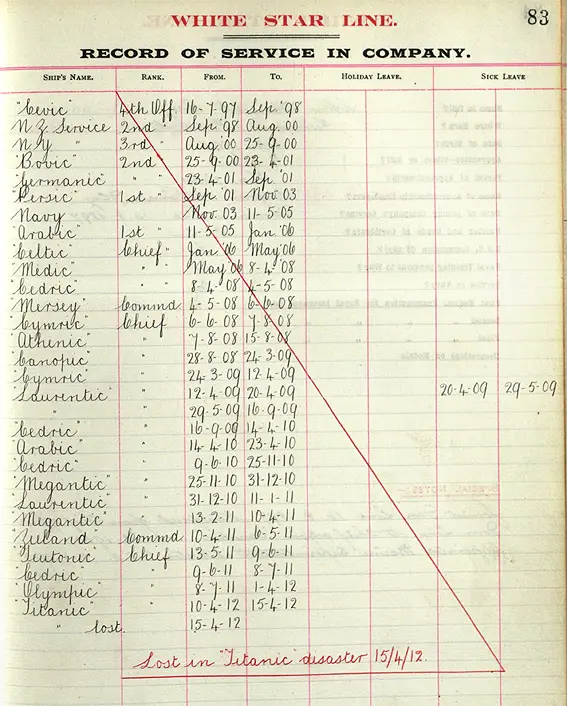 83
WHITE STAR LINE.
RECORD OF SERVICE IN COMPANY.
SHIP'S NAME. RANK. FROM. TO. HOLIDAY LEAVE. SICK LEAVE
"Cevic" 4th Off 16-7-97 Sep '98
N.Z. Service 2nd " Sep '98 Aug. 00
N.Y " 3rd " Aug 00 25-9-00
"Bovic" 2nd " 25-9-00 23-4-01
"Germanic" " " 23-4-01 Sep '01
"Persic" 1st " Sep '01 Nov 03
Navy Nov. 03 11-5-05
"Arabic" 1st " 11-5-05 Jan '06
"Celtic" Chief " Jan '06 May '06
"Medic" " " May '06 8-4-'08
"Cedric" " 8-4-'08 4-5-08
"Mersey" Commd 4-5-08 6-6-08
"Cymric" Chief 6-6-08 7-8-08
"Athenic" " 7-8-08 15-8-08
"Canopic" " 28-8-08 24-3-09
"Cymric" " 24-3-09 12-4-09
"Laurentic" " 12-4-09 20-4-09 20-4-09 29-5-09
" " 29-5-09 16-9-09
"Cedric" " 16-9-09 14-4-10
"Arabic" " 14-4-10 23-4-10
"Cedric" " 9-6-10 25-11-10
"Megantic" " 25-11-10 31-12-10
"Laurentic" " 31-12-10 11-1-11
"Megantic" " 13-2-11 10-4-11
"Zeeland" Commd 10-4-11 6-5-11
"Teutonic" Chief 13-5-11 9-6-11
"Cedric" " 9-6-11 8-7-11
"Olympic" " 8-7-11 1-4-12
"Titanic" " 10-4-12 15-4-12
" lost. 15-4-12
Lost in "Titanic" disaster 15/4/12.